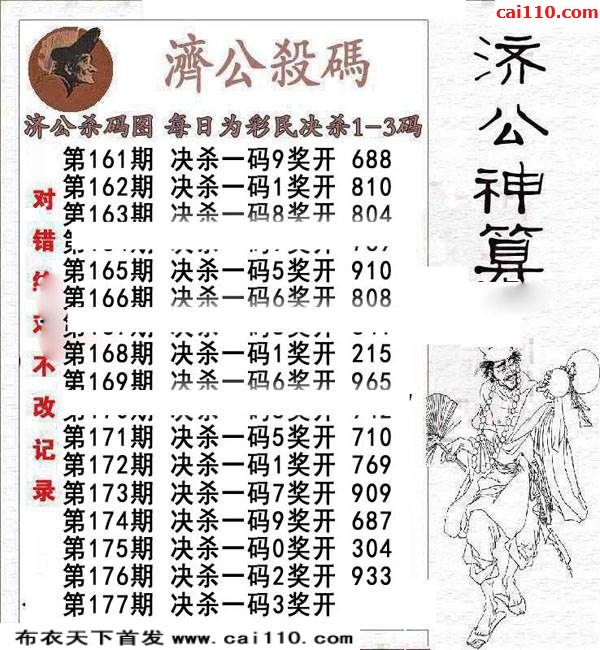 cai110.com
濟公殺碼
济公杀码图 每日为彩民决杀1-3码
第161期 决杀一码9奖开 688
第162期 决杀一码1奖开 810
第163期 决杀一码8奖开 804
第165期 决杀一码5奖开 910
第166期 决杀一码6奖开 808
第168期 决杀一码1奖开 215
第169期 决杀一码6奖开 965
第171期 决杀一码5奖开 710
第172期 决杀一码1奖开 769
第173期 决杀一码7奖开 909
第174期 决杀一码9奖开 687
第175期 决杀一码0奖开 304
第176期 决杀一码2奖开 933
第177期 决杀一码3奖开
对错
不改记录
济公神算
布衣天下首发 www.cai110.com